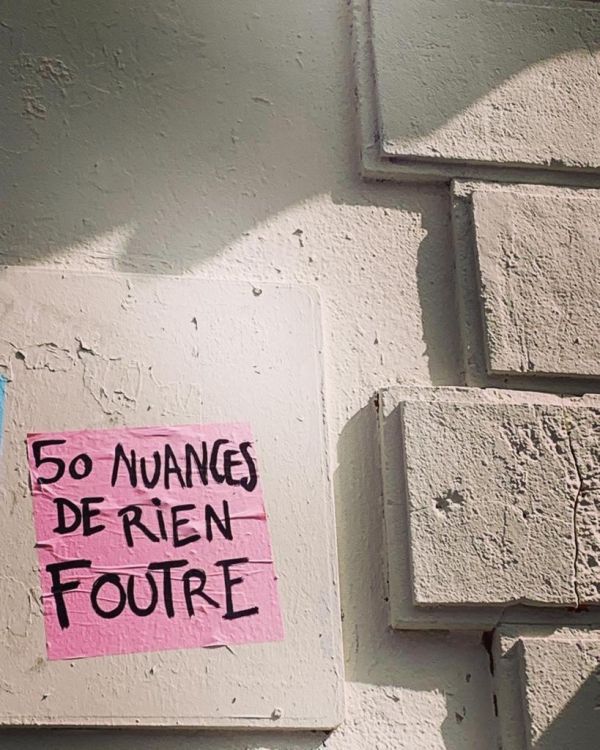 50 NUANCES
DE RiEN
FOUTRE